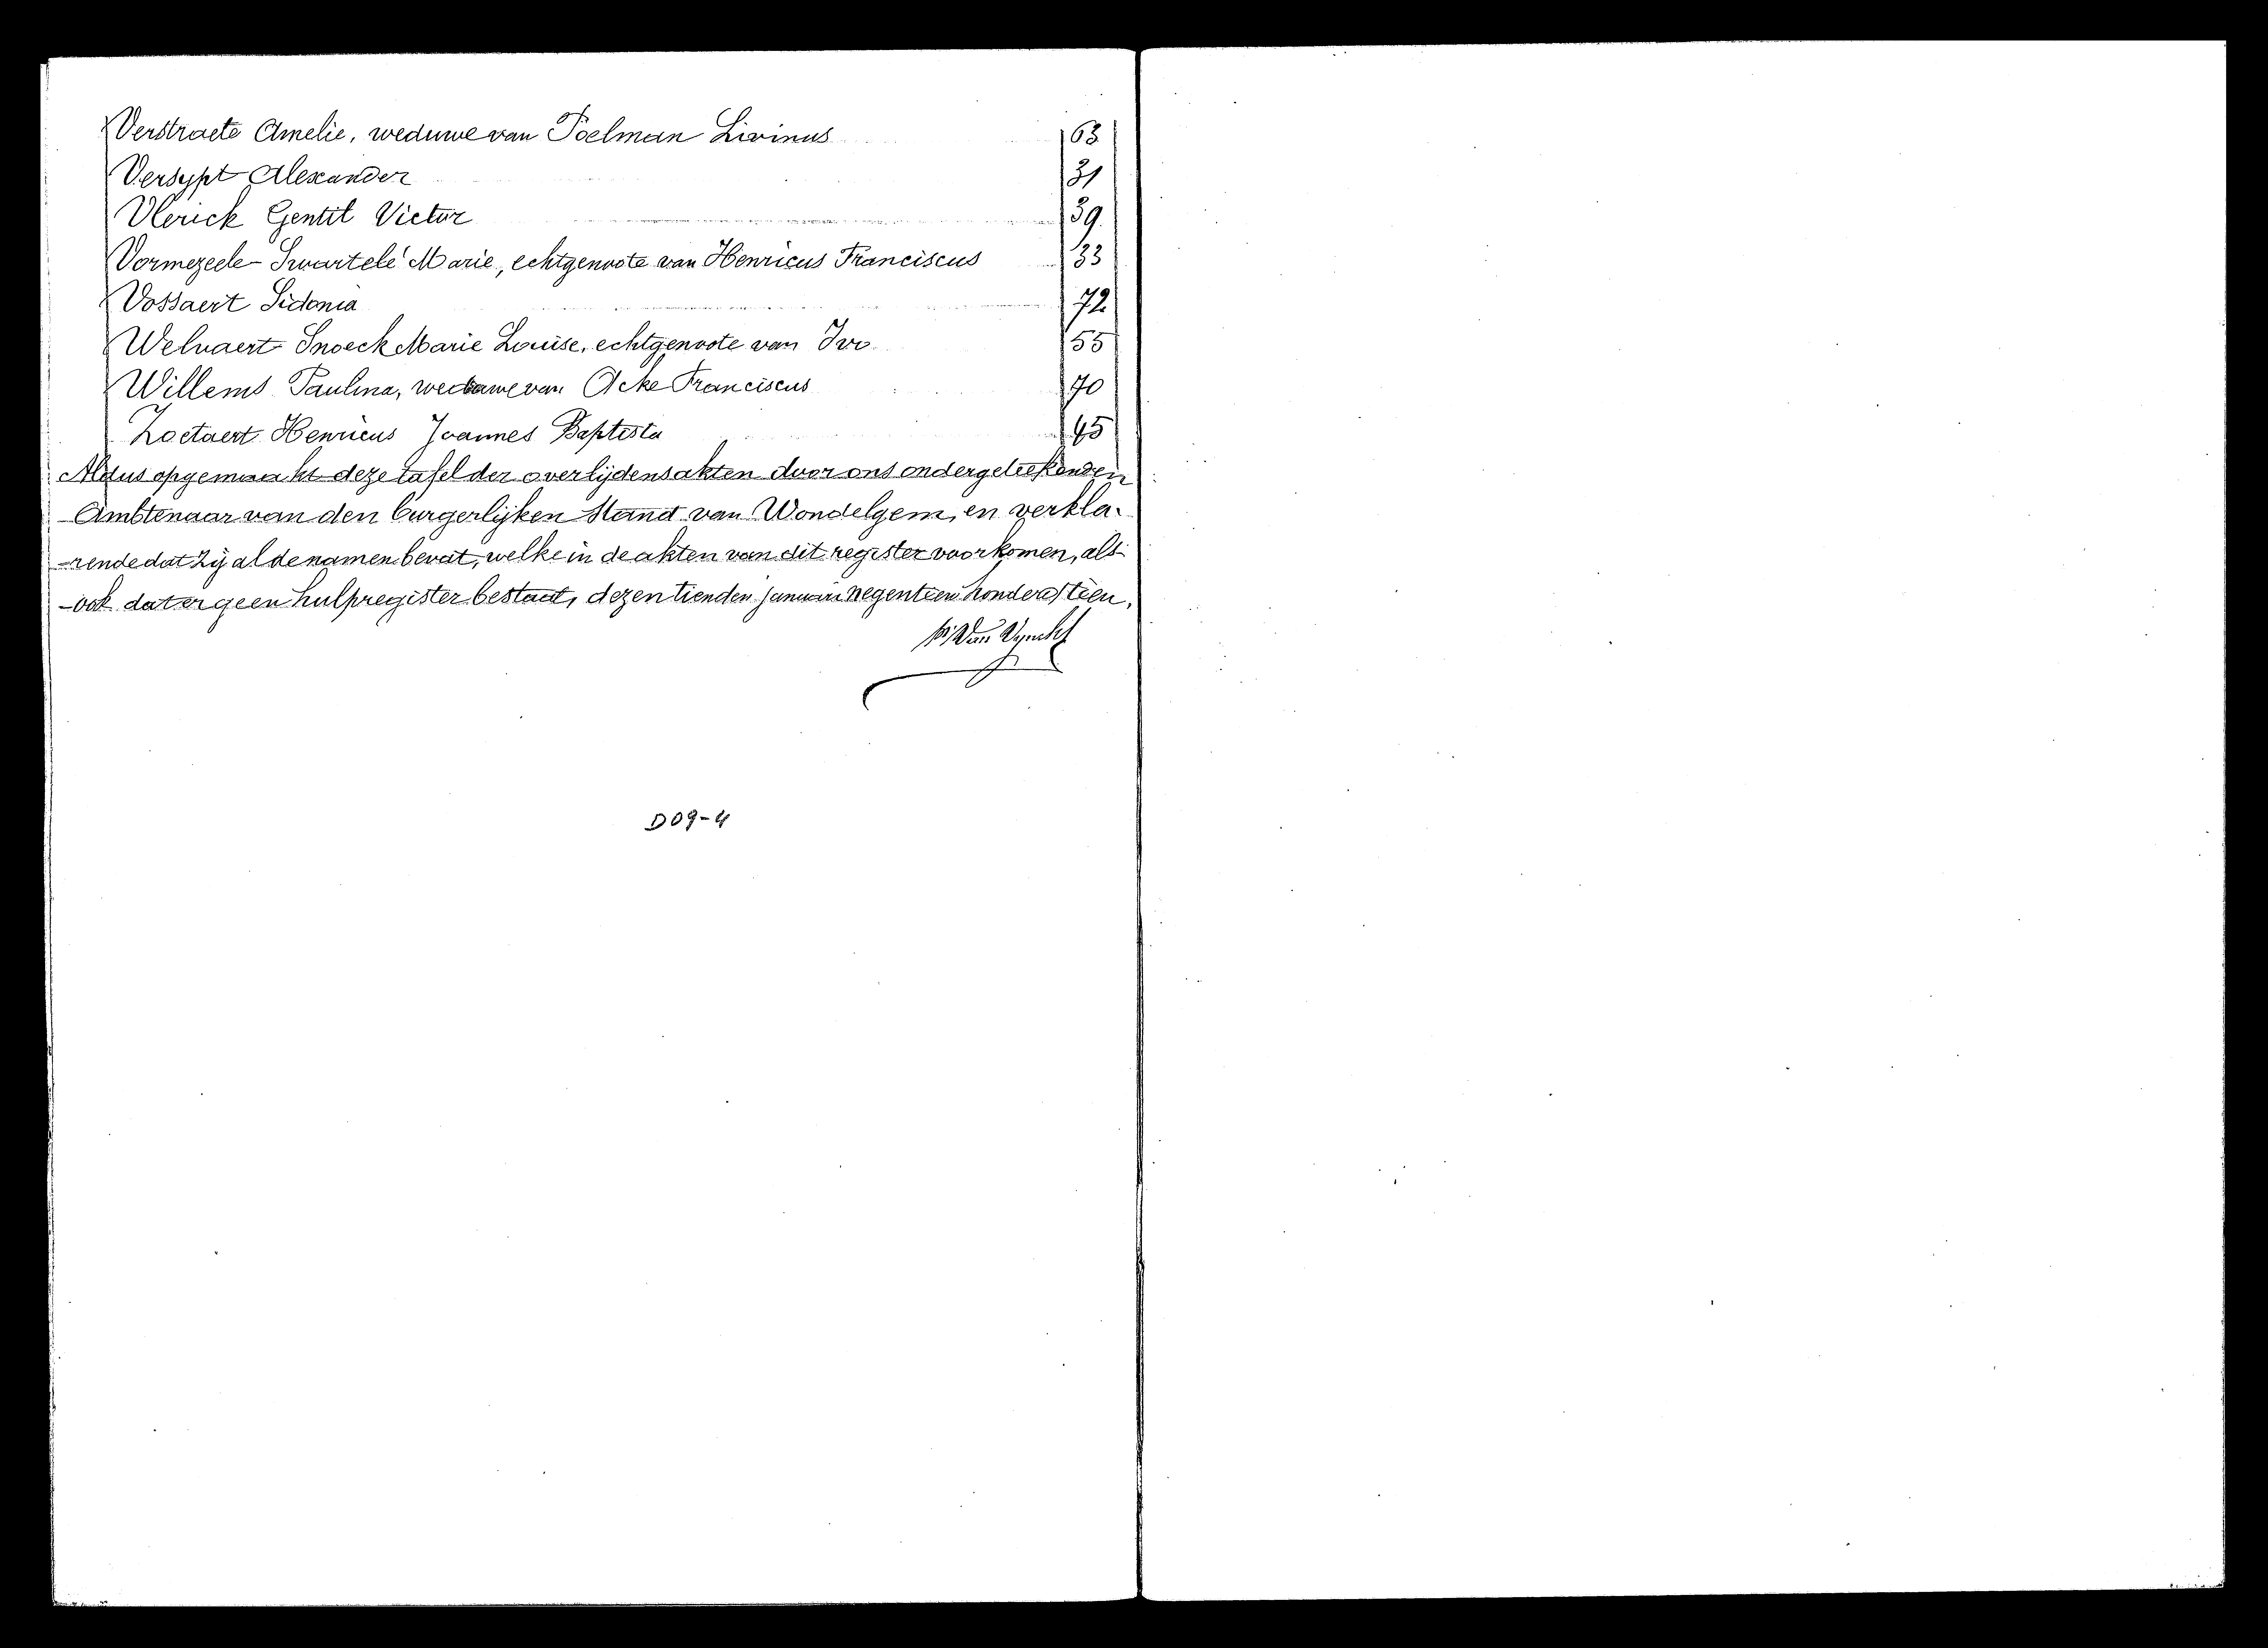 Verstraete Amelie, weduwe van Poelman Livinus 63
Versypt Alexander 31
Vlerick Gentil Victor 39
Vormezeele-Swartelé Marie, echtgenoote van Henricus Franciscus 33
Vossaert Sidonia 72
Welvaert Snoeck Marie Louise, echtgenoote van Ivo 55
Willems Paulina, weduwe van Acke Franciscus 70
Zoetaert Henricus Joannes Baptista 45
Aldus opgemaakt deze tafel der overlijdensakten door ons ondergeteekenden
Ambtenaar van den burgerlijken stand van Wondelgem, en verkla-
-rende dat zij al de namen bevat, welke in de akten van dit register voorkomen, als-
-ook dat er geen hulpregister bestaat, dezen tienden januari negentien honderd tien.
Van
D09-4